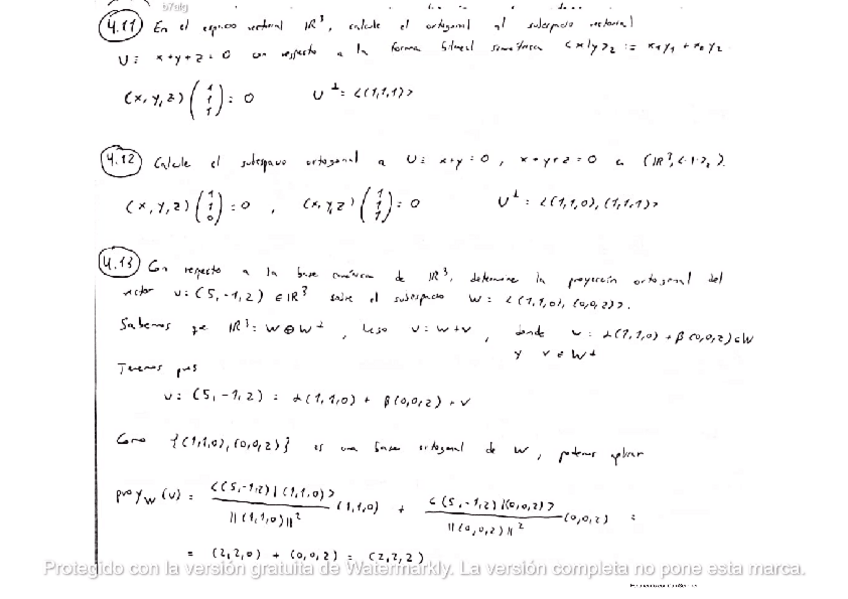 4.11 En el espacio vectorial IR³, calcule el ortogonal al subespacio vectorial
U ≡ x+y+z=0 con respecto a la forma bilineal simétrica <x|y>₂ := x₁y₁ + x₂y₂
(x,y,z)(1 1 1) = 0 U⊥ = <(1,1,1)>
4.12 Calcule el subespacio ortogonal a U ≡ x+y=0, x+y+z=0 (IR³,<·|·>₂).
(x,y,z)(1 1 0) = 0, (x,y,z)(1 1 1) = 0 U⊥ = <(1,1,0),(1,1,1)>
4.13 Con respecto a la base canónica de IR³, determine la proyección ortogonal del
vector u=(5,-1,2) ∈ IR³ sobre el subespacio W = <(1,1,0),(0,0,2)>.
Sabemos que IR³ = W ⊕ W⊥, luego u = w+v, donde w = α(1,1,0) + β(0,0,2) ∈ W
y v ∈ W⊥
Tenemos pues
u = (5,-1,2) = α(1,1,0) + β(0,0,2) + v
Como {(1,1,0),(0,0,2)} es una base ortogonal de W, podemos aplicar
proy_W(u) = <(5,-1,2)|(1,1,0)> / ||(1,1,0)||² (1,1,0) + <(5,-1,2)|(0,0,2)> / ||(0,0,2)||² (0,0,2) =
= (2,2,0) + (0,0,2) = (2,2,2)
Protegido con la versión gratuita de Watermarkly. La versión completa no pone esta marca.